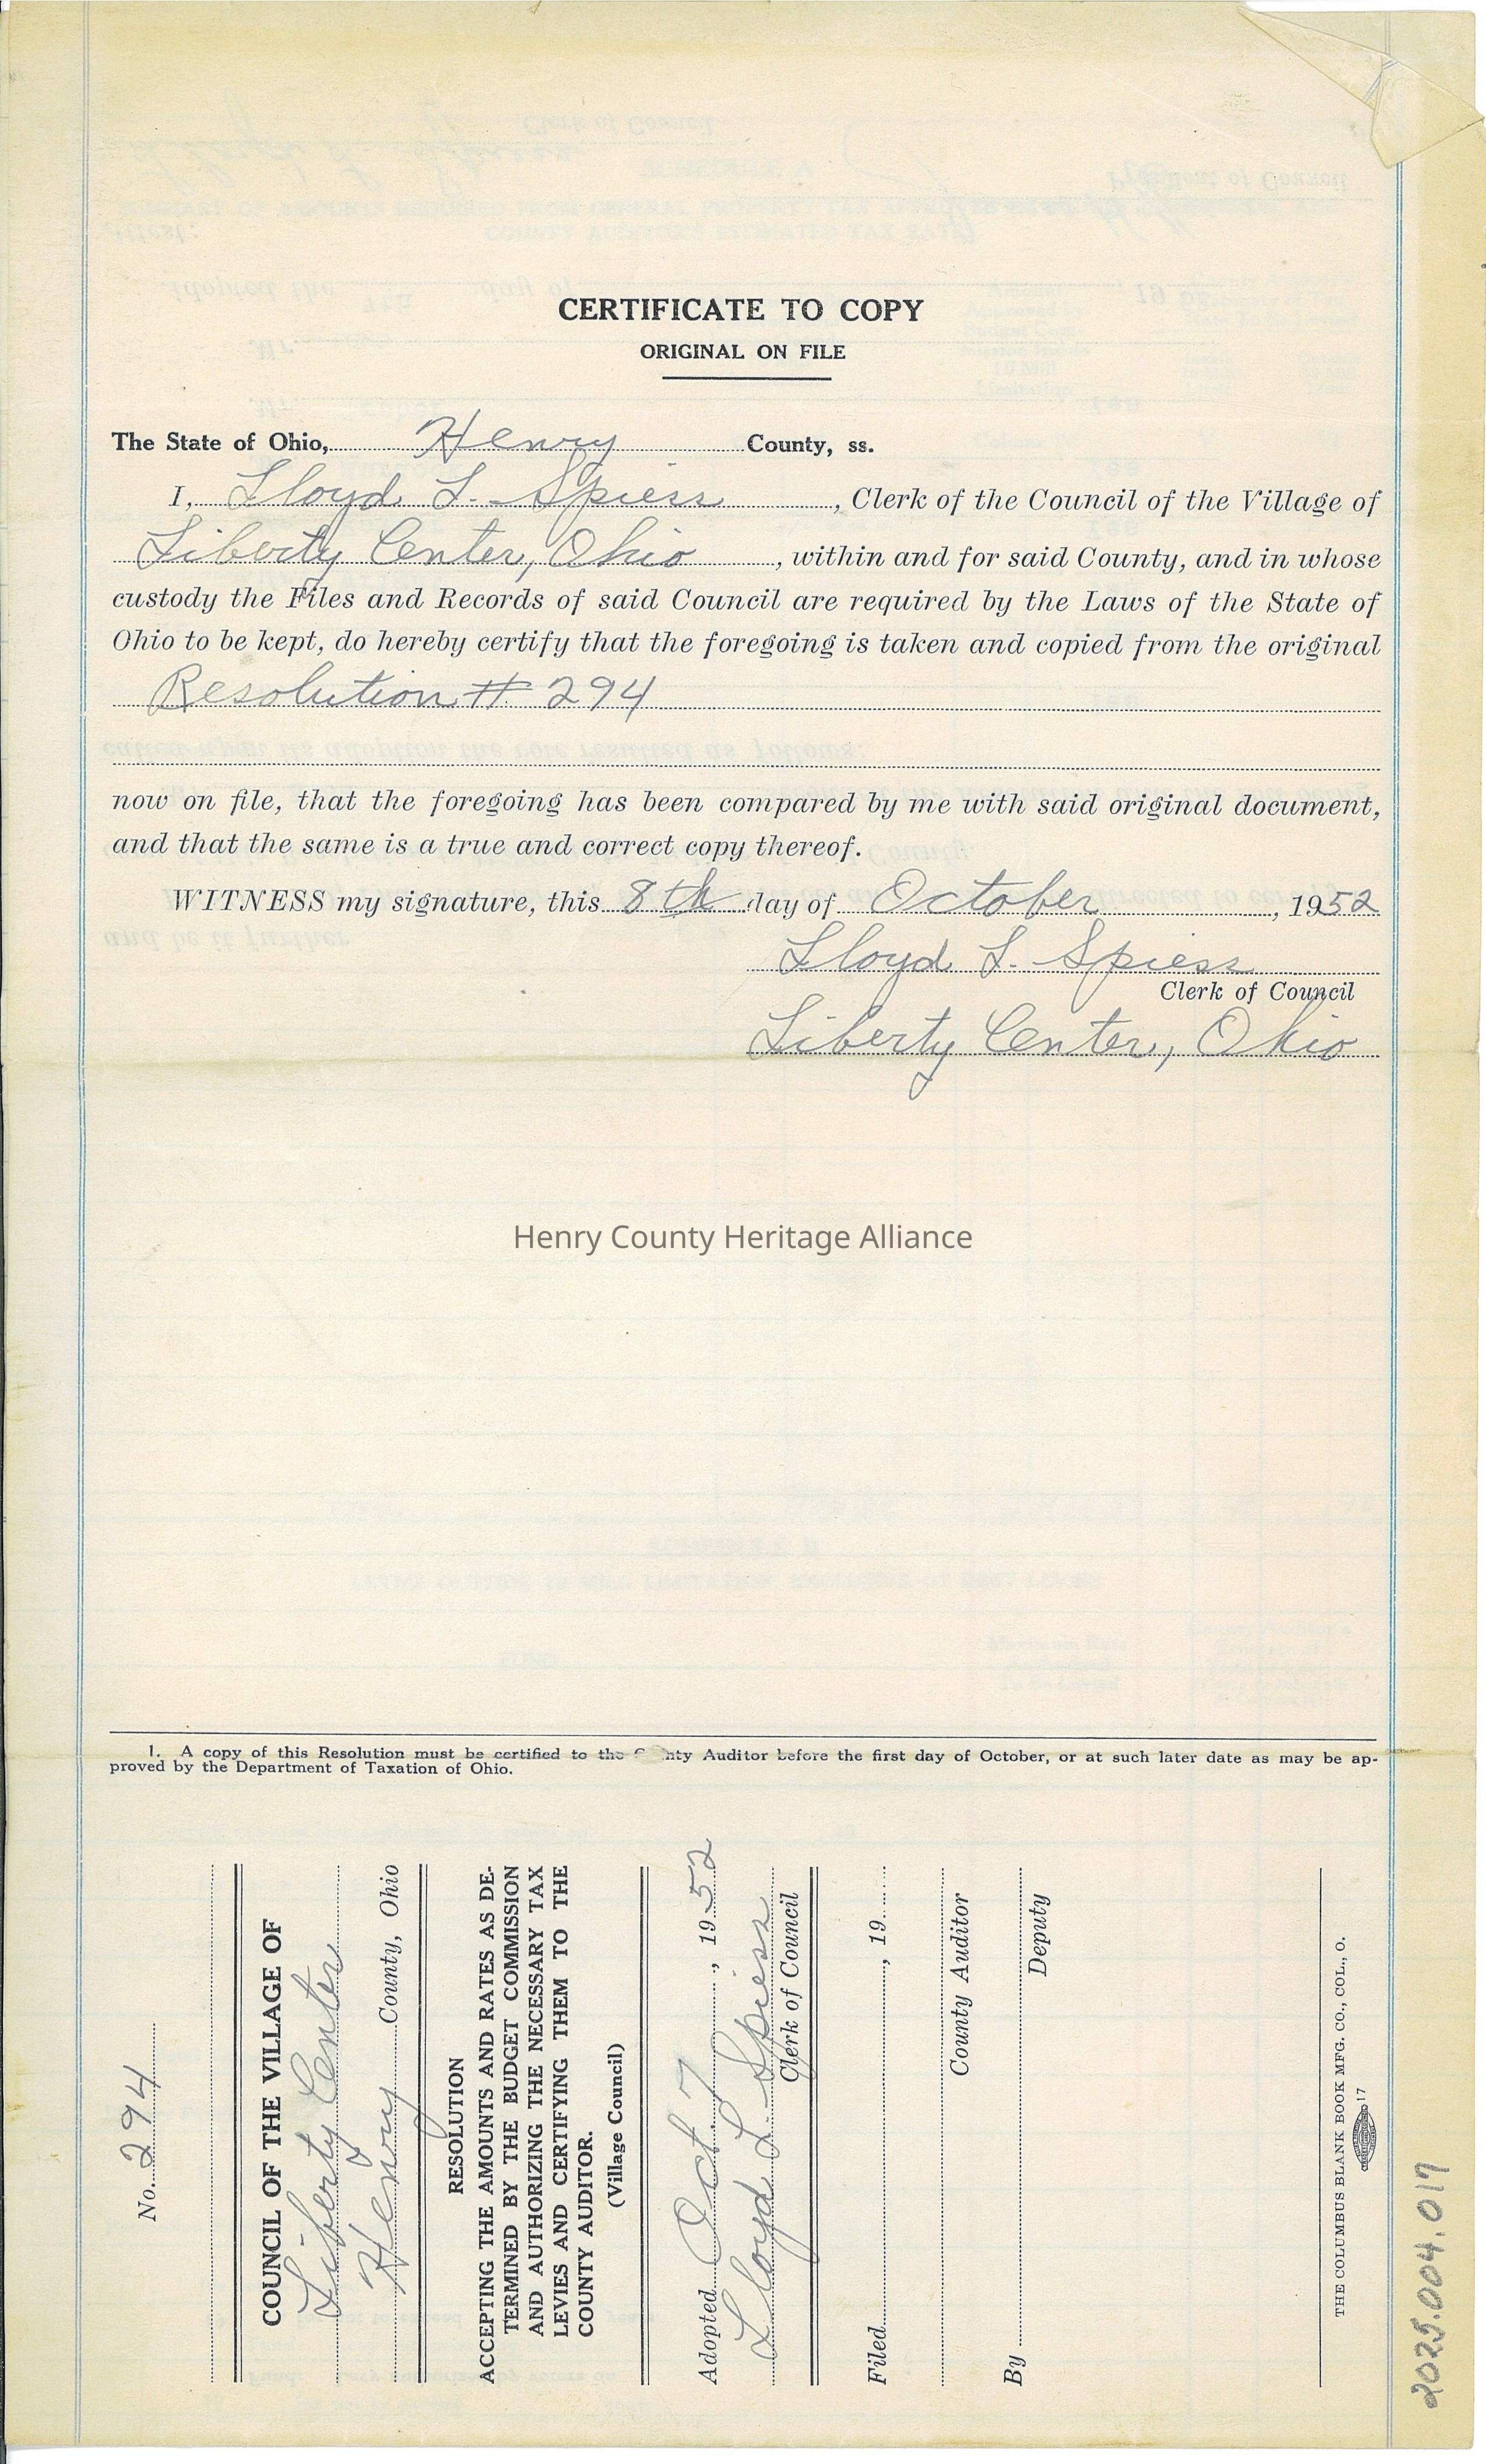 CERTIFICATE TO COPY
ORIGINAL ON FILE
The State of Ohio, Henry County, ss.
I, Lloyd L. Spiess, Clerk of the Council of the Village of
Liberty Center, Ohio, within and for said County, and in whose
custody the Files and Records of said Council are required by the Laws of the State of
Ohio to be kept, do hereby certify that the foregoing is taken and copied from the original
Resolution # 294
now on file, that the foregoing has been compared by me with said original document,
and that the same is a true and correct copy thereof.
WITNESS my signature, this 8th day of October, 1952
Lloyd L. Spiess
Clerk of Council
Liberty Center, Ohio
Henry County Heritage Alliance
1. A copy of this Resolution must be certified to the nty Auditor before the first day of October, or at such later date as may be ap-
proved by the Department of Taxation of Ohio.
No. 294
COUNCIL OF THE VILLAGE OF
Liberty Center
Henry County, Ohio
RESOLUTION
ACCEPTING THE AMOUNTS AND RATES AS DE-
TERMINED BY THE BUDGET COMMISSION
AND AUTHORIZING THE NECESSARY TAX
LEVIES AND CERTIFYING THEM TO THE
COUNTY AUDITOR.
(Village Council)
Adopted Oct. 7, 1952
Lloyd L. Spiess
Clerk of Council
Filed, 19
County Auditor
By
Deputy
THE COLUMBUS BLANK BOOK MFG. CO., COL., O.
17
2025.004.017